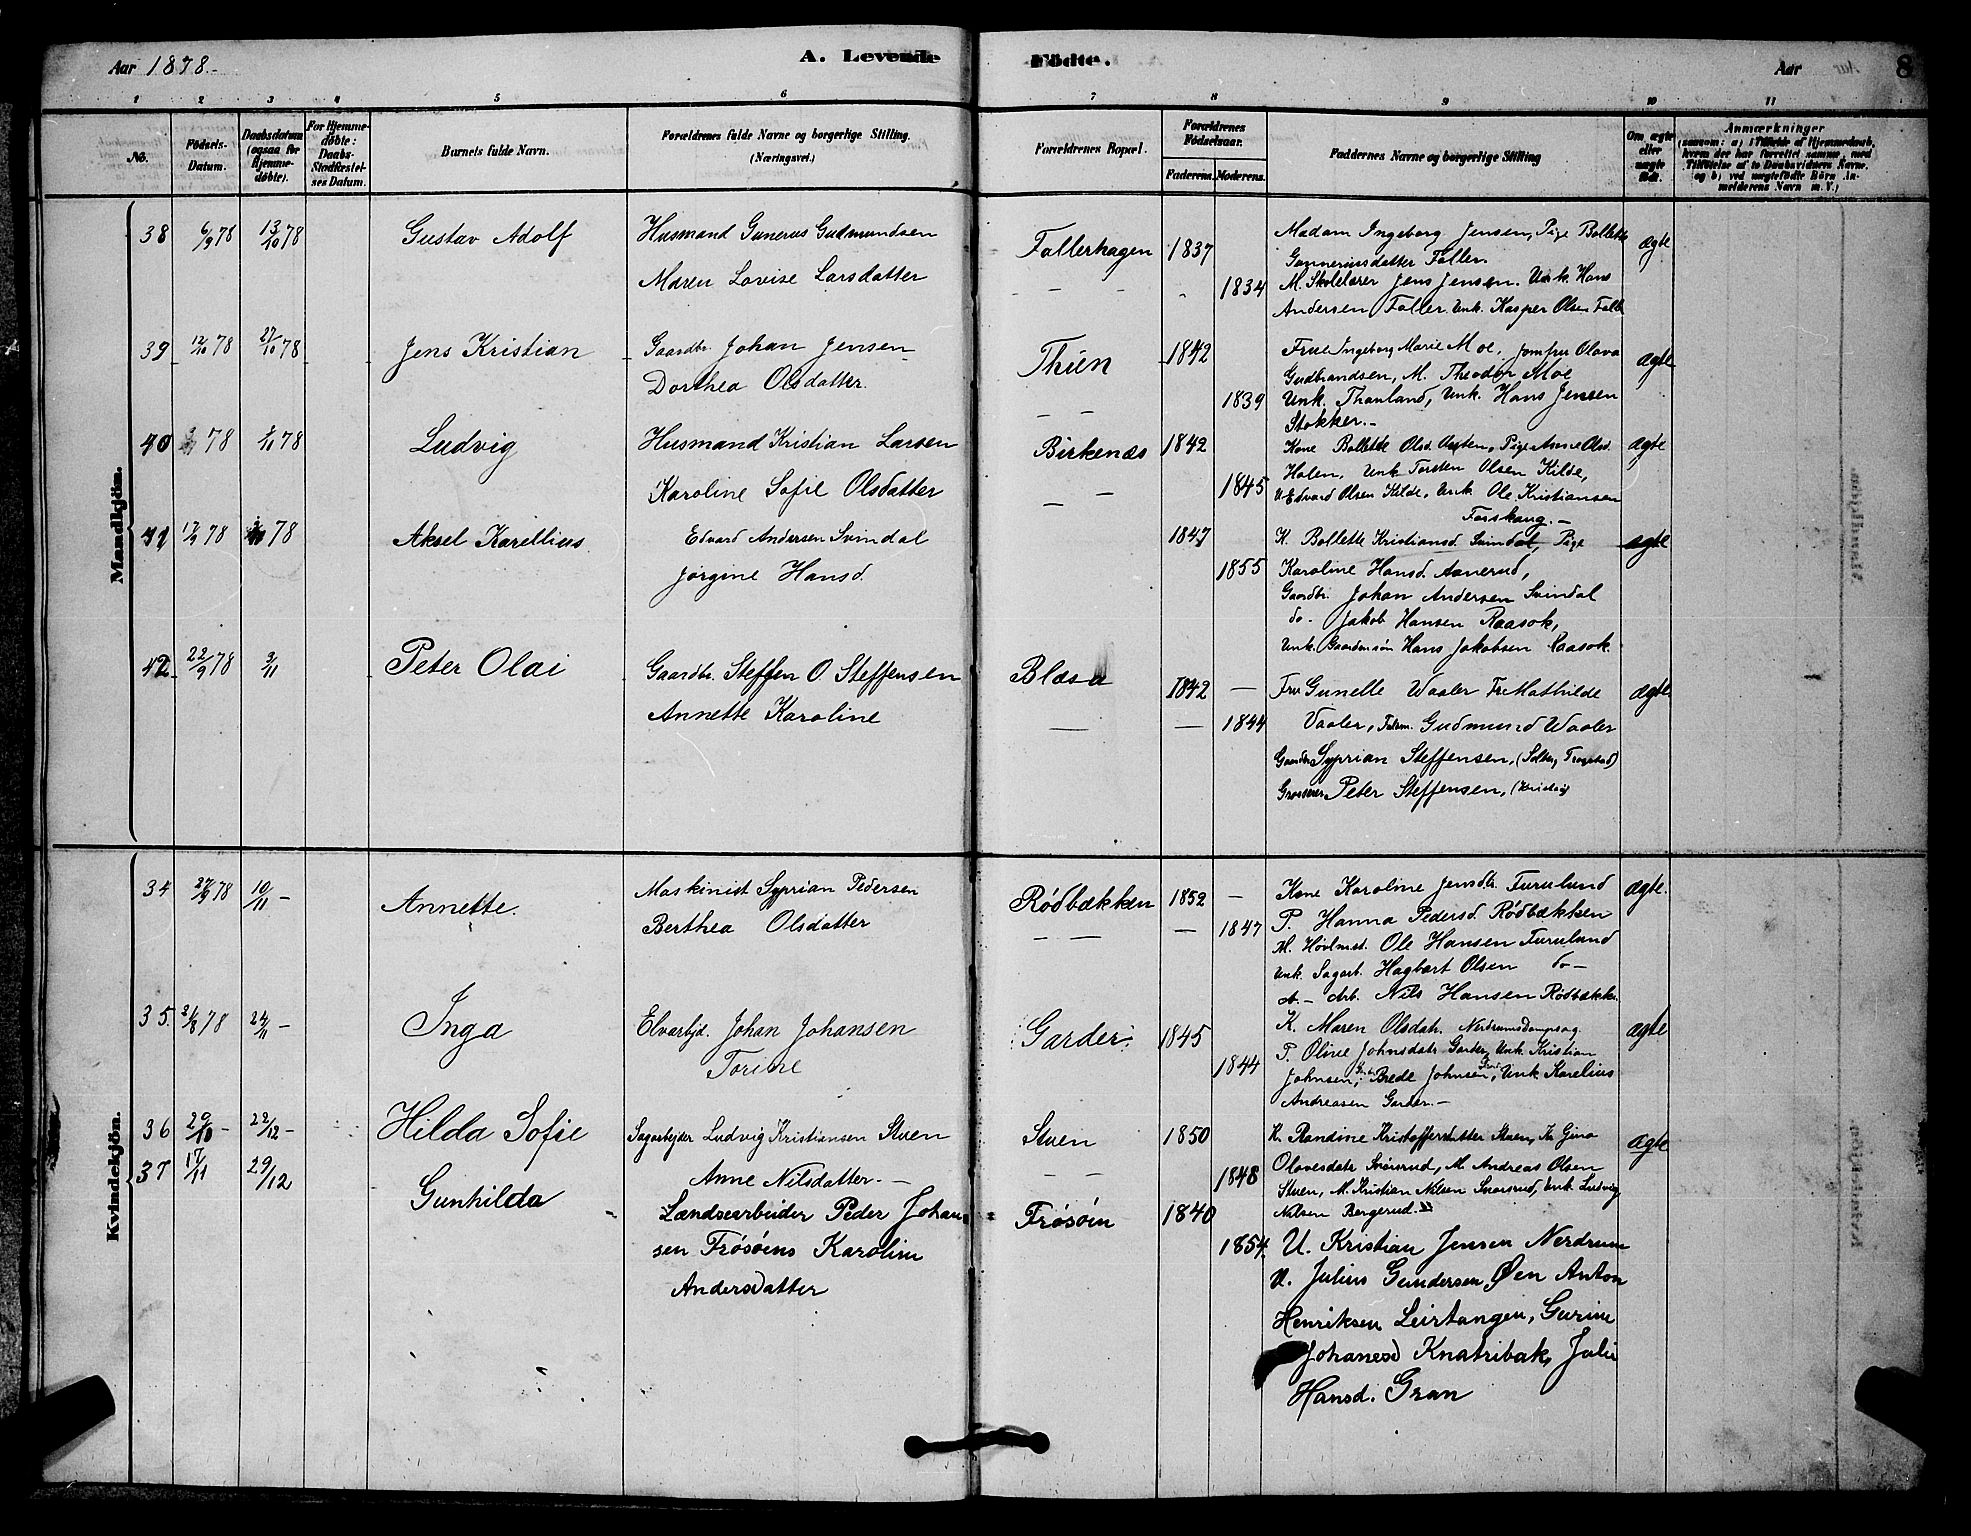 Aar 1878.
A. Levende
Födte.
Aar
8
1 2 3 4 5 6 7 8 9 10 11
No.
Födsels-
Datum.
Daabsdatum
(ogsaa for
Hjemme-
döbte).
For Hjemme-
döbte:
Daabs-
Stadfæstel-
ses Datum.
Barnets fulde Navn.
Forældrenes fulde Navne og borgerlige Stilling.
(Næringsvei.)
Forældrenes Bopæl.
Forældrenes
Födselsaar.
Faderens. Moderens.
Faddernes Navne og borgerlige Stilling
Om ægte
eller
uægte
födt.
Anmærkninger
(saasom: a) i Tilfælde af Hjemmedaab,
hvem der har forrettet samme, med
Tilföielse af to Daabsvidners Navne,
og b) ved uægtefödte Börn An-
melderens Navn m. V.)
Mandkjön.
38 6/9 78 13/10 78 Gustav Adolf
Husmand Gunerus Gudmundsen
Maren Lovise Larsdatter
Fallerhagen 1837
1834
Madam Ingeborg Jensen, Pige Bollette
Gunneriusdatter Faller.
M. Skolelærer Jens Jensen. Unk. Hans
Andersen Faller. Unk. Kasper Olsen Falle
ægte
39 12/10 78 27/10 78 Jens Kristian
Gaardbr. Johan Jensen
Dorthea Olsdatter.
Thien 1842
1839
Frue Ingeborg Marie Moe, Jomfru Olava
Gudbrandsen, M. Theodor Moe
Unk. Thanland, Unk. Hans Jensen
Stokker.-
ægte
40 78 78 Ludvig
Husmand Kristian Larsen
Karoline Sofie Olsdatter
Birkenæs 1842
1845
Kone Bollette Olsd. Pige Anne Olsd.
Holen, Unk Torsten Olsen Kilde,
U. Edvard Olsen Kilde, Unk. Ole Kristiansen
Forskaug.-
ægte
41 78 78 Aksel Karellius
Edvard Andersen Svindal
Jørgine Hansd.
1847
1855
K. Bollette Kristiansd. Svindal, Pige
Karoline Hansd. Aanerud,
Gaardbr. Johan Andersen Svindal
do- Jakob Hansen Raasok,
Unk. Gaardmsøn Hans Jakobsen Raasok.
ægte
42 22/9 78 3/11 Peter Olai
Gaardbr. Steffen O. Steffensen
Annette Karoline
Blæsa 1842 —
— 1844
Fru Gunelle Waaler Fr Mathilde
Vaaler, Gudmund Waaler
Gaardbr Syprian Steffensen, (Solberg Trøgstad)
Grosserer Peter Steffensen,
ægte
Kvindekjön.
34 27/9 78 10/11 — Annette.
Maskinist Syprian Pedersen
Berthea Olsdatter
Rödbækken 1852 —
— 1847
Kone Karoline Jensdtr. Furulund
P. Hanna Pedersd. Rödbækken
M. Høvlmst. Ole Hansen Furulund
Unk. Sagarb. Hagbart Olsen do—
d.— Arb. Nils Hansen Rödbækk.
ægte.
35. 21/8 78 24/11 — Inga
Elvarbjd. Johan Johansen
Torine
Garder. 1845
1844
K. Maren Olsdatr. Nerdrumsdampsag.
P. Oline Johnsdatr Garder, Unk. Kristian
Johnsen, Brede Johnsen, Unk Karelius
Andreasen Garder.-
ægte
36 29/10 — 22/12 — Hilda Sofie
Sagarbejder Ludvig Kristiansen Stuen
Anne Nilsdatter.—
Stuen 1850
1848
K. Randine Kristoffersdatter Stuen, K. Gina
Olavesdatr Snörsrud, M. Andreas Olsen
Stuen, M. Kristian Nilsen Snorsrud, Unk Ludvig
Nilsen Bergerud.
ægte
37 17/11 29/12 Gunhilda
Lændsearbeider Peder Johan
sen Frøsøens Karolin
Andersdatter
Frøsøen 1840
1854.
U. Kristian Jensen Nerdrum
U. Julius Gundersen Øen Anton
Henriksen Leirtangen, Gurine
Johanesd Knatribak, Julie
Hansd. Gran